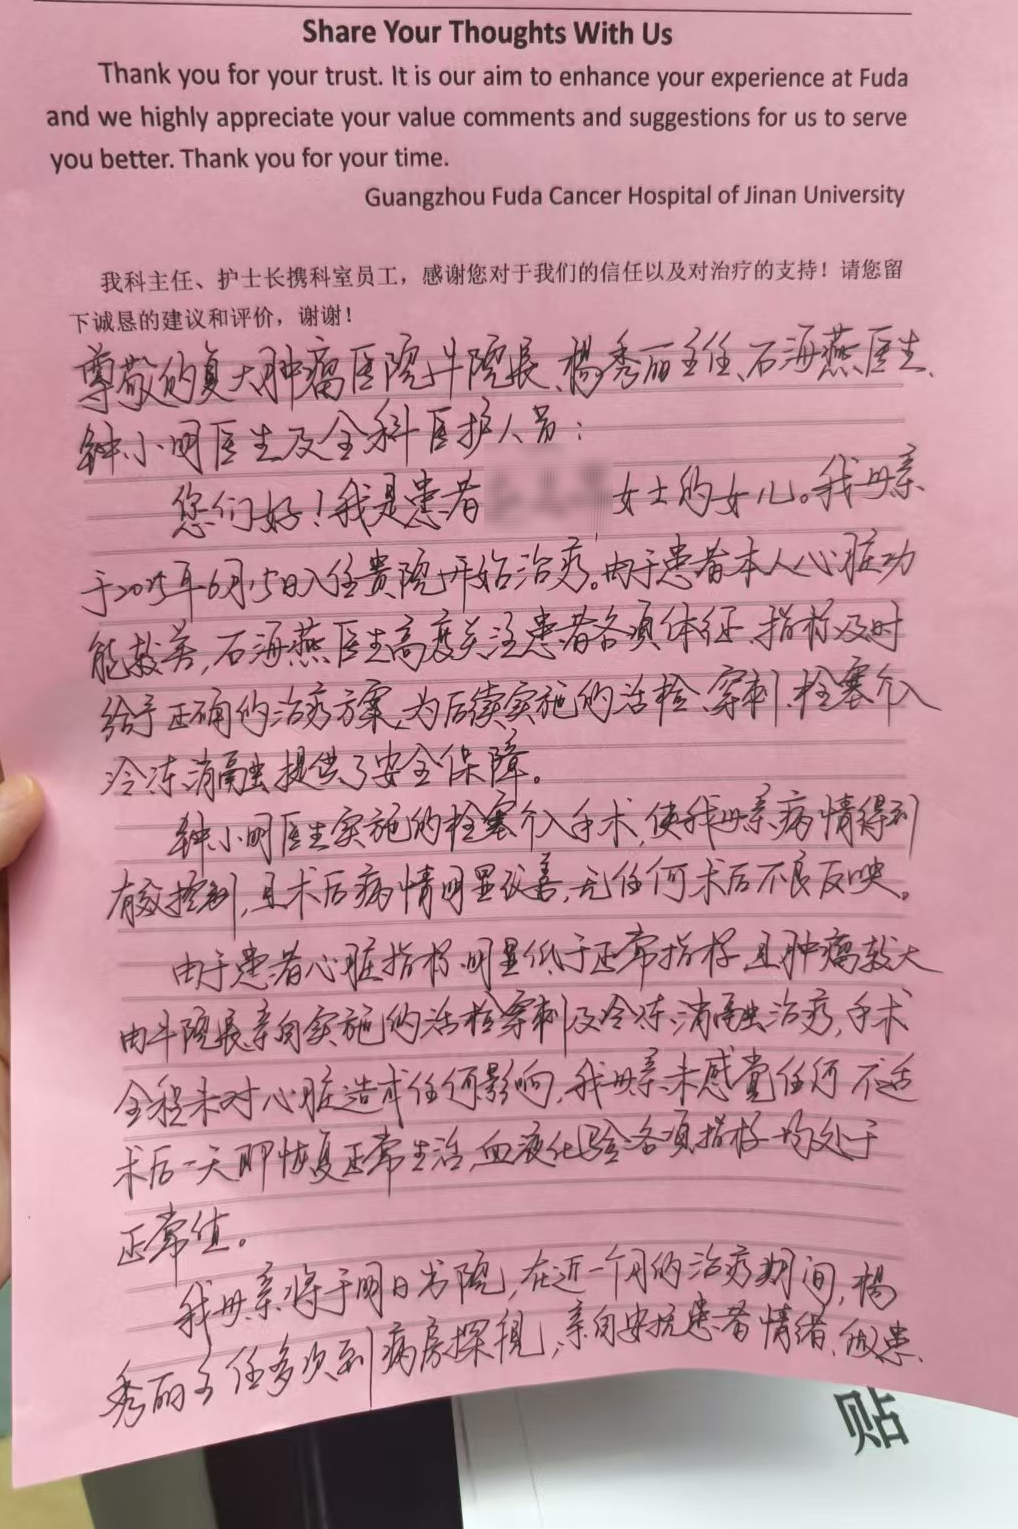 Share Your Thoughts With Us
Thank you for your trust. It is our aim to enhance your experience at Fuda
and we highly appreciate your value comments and suggestions for us to serve
you better. Thank you for your time.
Guangzhou Fuda Cancer Hospital of Jinan University
我科主任、护士长携科室员工，感谢您对于我们的信任以及对治疗的支持！请您留
下诚恳的建议和评价，谢谢！
尊敬的复大肿瘤医院牛院长、杨秀丽主任、石海燕医生、
钟小明医生及全科医护人员：
您们好！我是患者 女士的女儿。我母亲
于2025年6月15日入住贵院开始治疗。由于患者本人心脏功
能较差，石海燕医生高度关注患者各项体征、指标及时
给予正确的治疗方案，为后续实施的活检、穿刺、栓塞介入
冷冻消融提供了安全保障。
钟小明医生实施的栓塞介入手术，使我母亲病情得到
有效控制，且术后病情明显改善，无任何术后不良反映。
由于患者心脏指标明显低于正常指标，且肿瘤较大
由牛院长亲自实施的活检穿刺及冷冻消融治疗，手术
全程未对心脏造成任何影响，我母亲未感觉任何不适
术后一天即恢复正常生活，血液化验各项指标均处于
正常值。
我母亲将于明日出院，在近一个月的治疗期间，杨
秀丽主任多次到病房探视，亲自安抚患者情绪，做患
贴